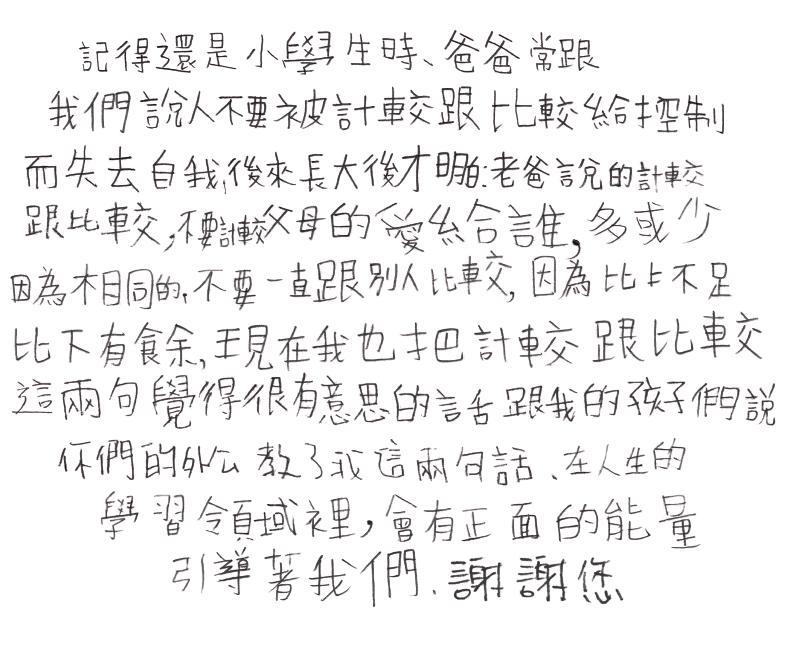 記得還是小學生時、爸爸常跟
我們說人不要被計較跟比較給控制
而失去自我,後來長大後才明白:老爸說的計較
跟比較,不要計較父母的愛給誰,多或少
因為木目同的,不要一直跟別人比較,因為比上不足
比下有餘,現在我也才把計較跟比較
這兩句覺得很有意思的話跟我的孩子們說
你們的外公教了我這兩句話、在人生的
學習領域裡,會有正面的能量
引導著我們、謝謝您